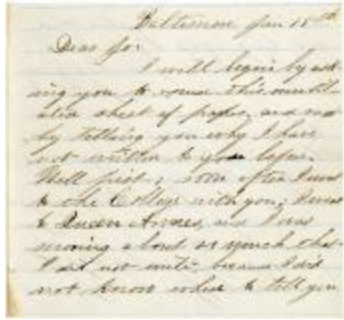 Baltimore Jan 15th
Dear Jo:
I will begin by ask
ing you to excuse this mutil
ated sheet of paper, and next
by telling you why I have
not written to you before.
Well first; soon after I went
to the College with you, I went
to Queen Annes, and I was
moving about so much that
I did not write, because I did
not know where to tell you